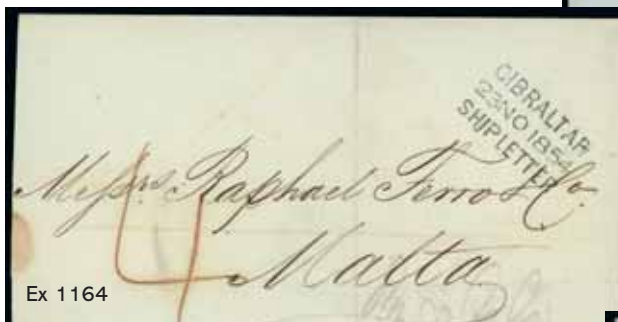 GIBRALTAR
23NO1854
SHIP LETTER
Messrs. Raphael Ferro & Co.
4
Malta
Ex 1164